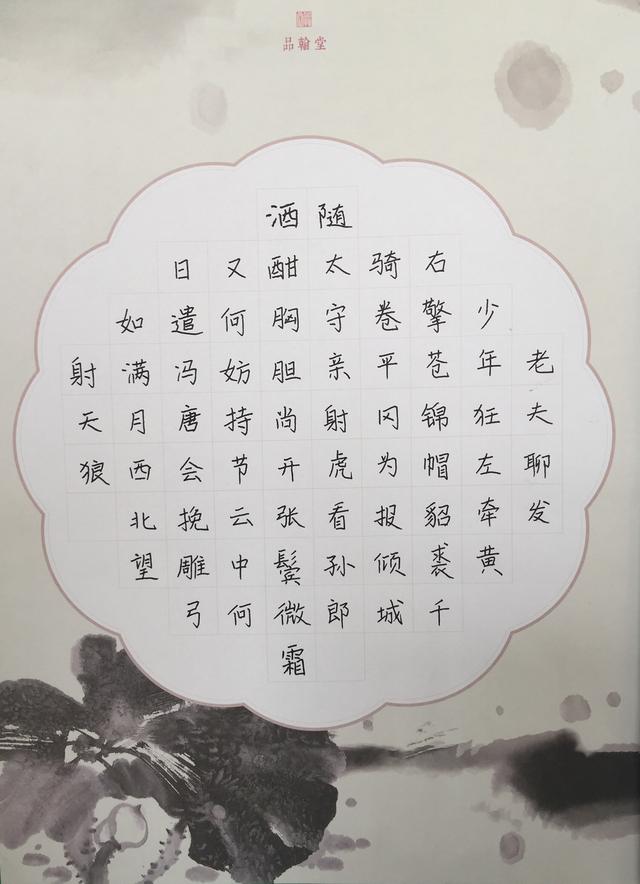 品翰堂
老夫聊发
少年狂左牵黄
右擎苍锦帽貂裘千
骑卷平冈为报倾城
随太守亲射虎看孙郎
酒酣胸胆尚开张鬓微霜
又何妨持节云中何
日遣冯唐会挽雕弓
如满月西北望
射天狼